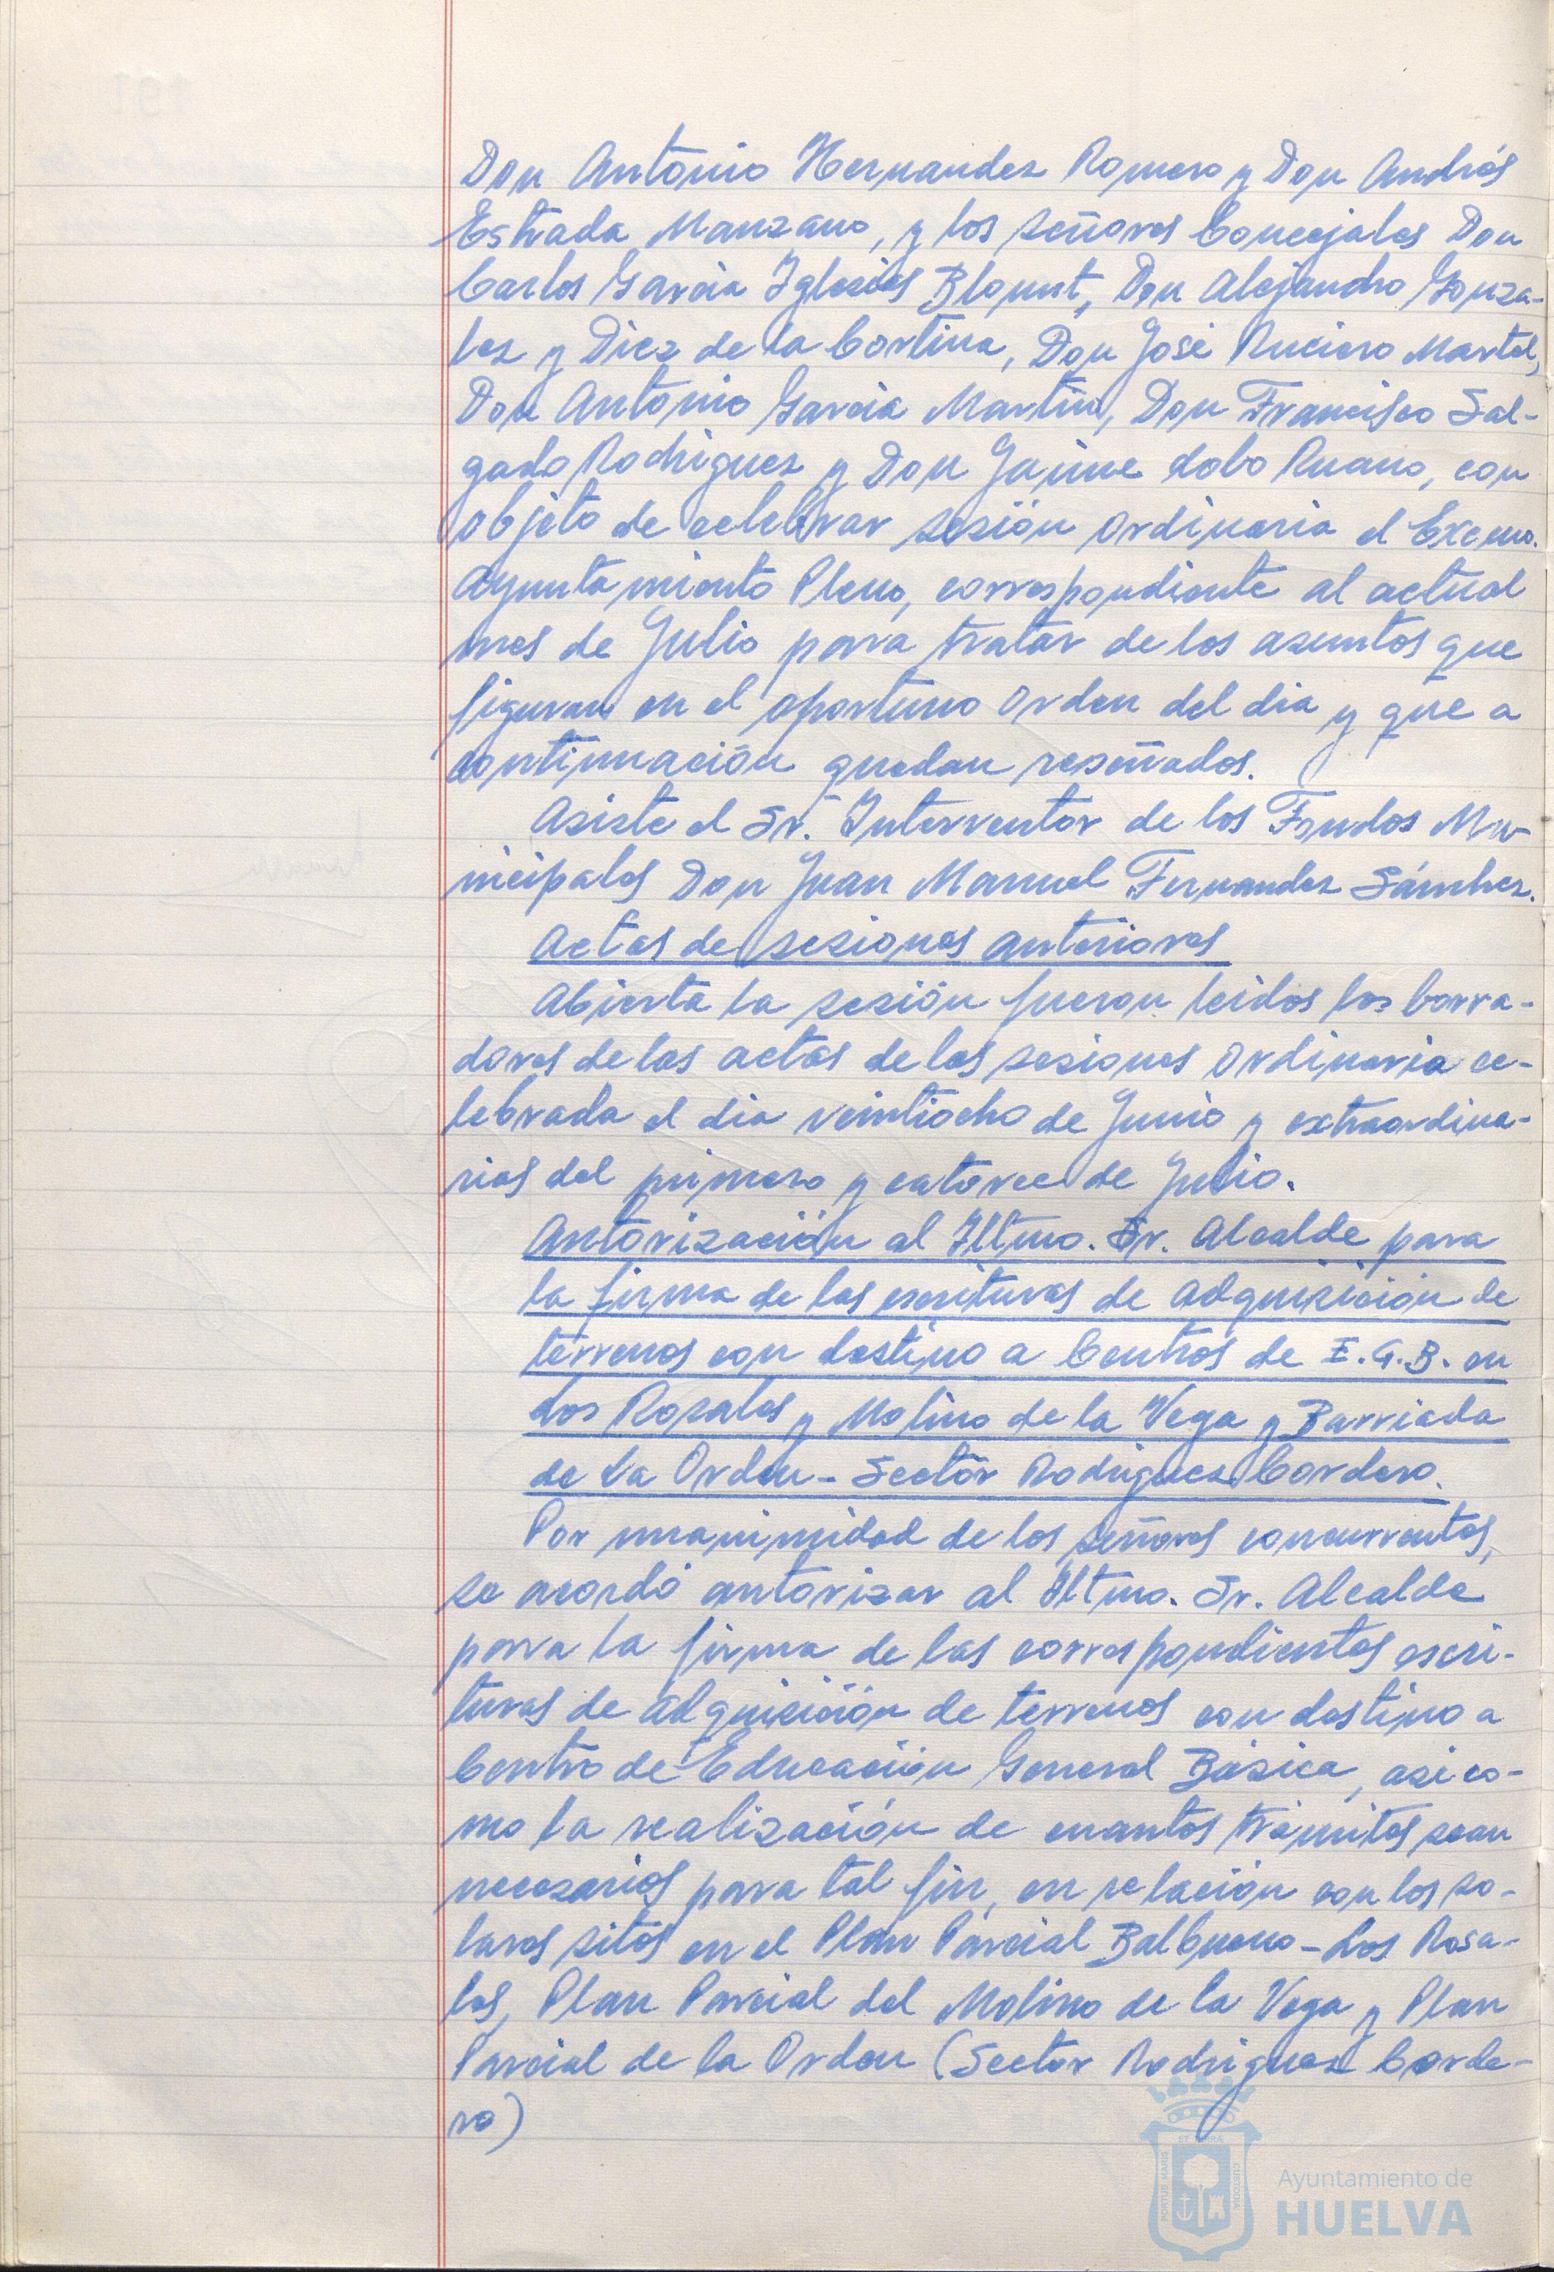 Don Antonio Hernandez Romero y Don Andrés
Estrada Manzano, y los señores Concejales Don
Carlos Garcia Iglesias Blount, Don Alejandro Gonza-
lez y Diez de la Cortina, Don José Ruciero Martel,
Don Antonio Garcia Martin, Don Francisco Sal-
gado Rodriguez y Don Jaime Lobo Ruano, con
objeto de celebrar sesión ordinaria el Excmo.
Ayuntamiento Pleno, correspondiente al actual
mes de Julio para tratar de los asuntos que
figuran en el oportuno Orden del dia y que a
continuación quedan reseñados.
Asiste el Sr. Interventor de los Fondos Mu-
nicipales Don Juan Manuel Fernandez Sánchez.
Actas de sesiones anteriores
Abierta la sesión fueron leidos los borra-
dores de las actas de las sesiones Ordinaria ce-
lebrada el dia veintiocho de Junio y extraordina-
rias del primero y catorce de Julio.
Autorización al Iltmo. Sr. Alcalde para
la firma de las escrituras de adquisición de
terrenos con destino a Centros de E.G.B. en
Los Rosales y Molino de la Vega y Barriada
de La Orden - Sector Rodriguez Cordero.
Por unanimidad de los señores concurrentes,
se acordó autorizar al Iltmo. Sr. Alcalde
para la firma de las correspondientes escri-
turas de adquisición de terrenos con destino a
Centro de Educación General Básica, asi co-
mo la realización de cuantos trámites sean
necesarios para tal fin, en relación con los so-
lares sitos en el Plan Parcial Balbueno - Los Rosa-
les, Plan Parcial del Molino de la Vega y Plan
Parcial de la Orden (Sector Rodriguez Corde-
ro)
PORTUS MARIS
ET TERRÆ
CUSTODIA
Ayuntamiento de
HUELVA